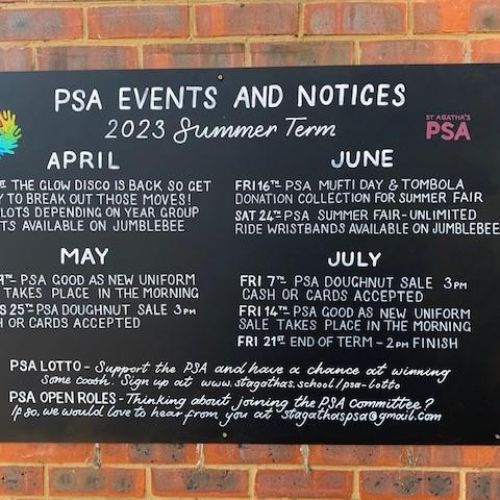 PSA EVENTS AND NOTICES
2023 Summer Term
ST AGATHA'S
PSA
APRIL
THE GLOW DISCO IS BACK SO GET
TO BREAK OUT THOSE MOVES!
LOTS DEPENDING ON YEAR GROUP
TS AVAILABLE ON JUMBLEBEE
MAY
PSA GOOD AS NEW UNIFORM
TAKES PLACE IN THE MORNING
S 25TH PSA DOUGHNUT SALE 3PM
H OR CARDS ACCEPTED
JUNE
FRI 16TH PSA MUFTI DAY & TOMBOLA
DONATION COLLECTION FOR SUMMER FAIR
SAT 24TH PSA SUMMER FAIR - UNLIMITED
RIDE WRISTBANDS AVAILABLE ON JUMBLEBEE
JULY
FRI 7TH PSA DOUGHNUT SALE 3PM
CASH OR CARDS ACCEPTED
FRI 14TH PSA GOOD AS NEW UNIFORM
SALE TAKES PLACE IN THE MORNING
FRI 21ST END OF TERM - 2PM FINISH
PSA LOTTO - Support the PSA and have a chance at winning
some cash. Sign up at www.stagathas.school/psa-lotto
PSA OPEN ROLES - Thinking about joining the PSA Committee?
If so, we would love to hear from you at stagathaspsa@gmail.com